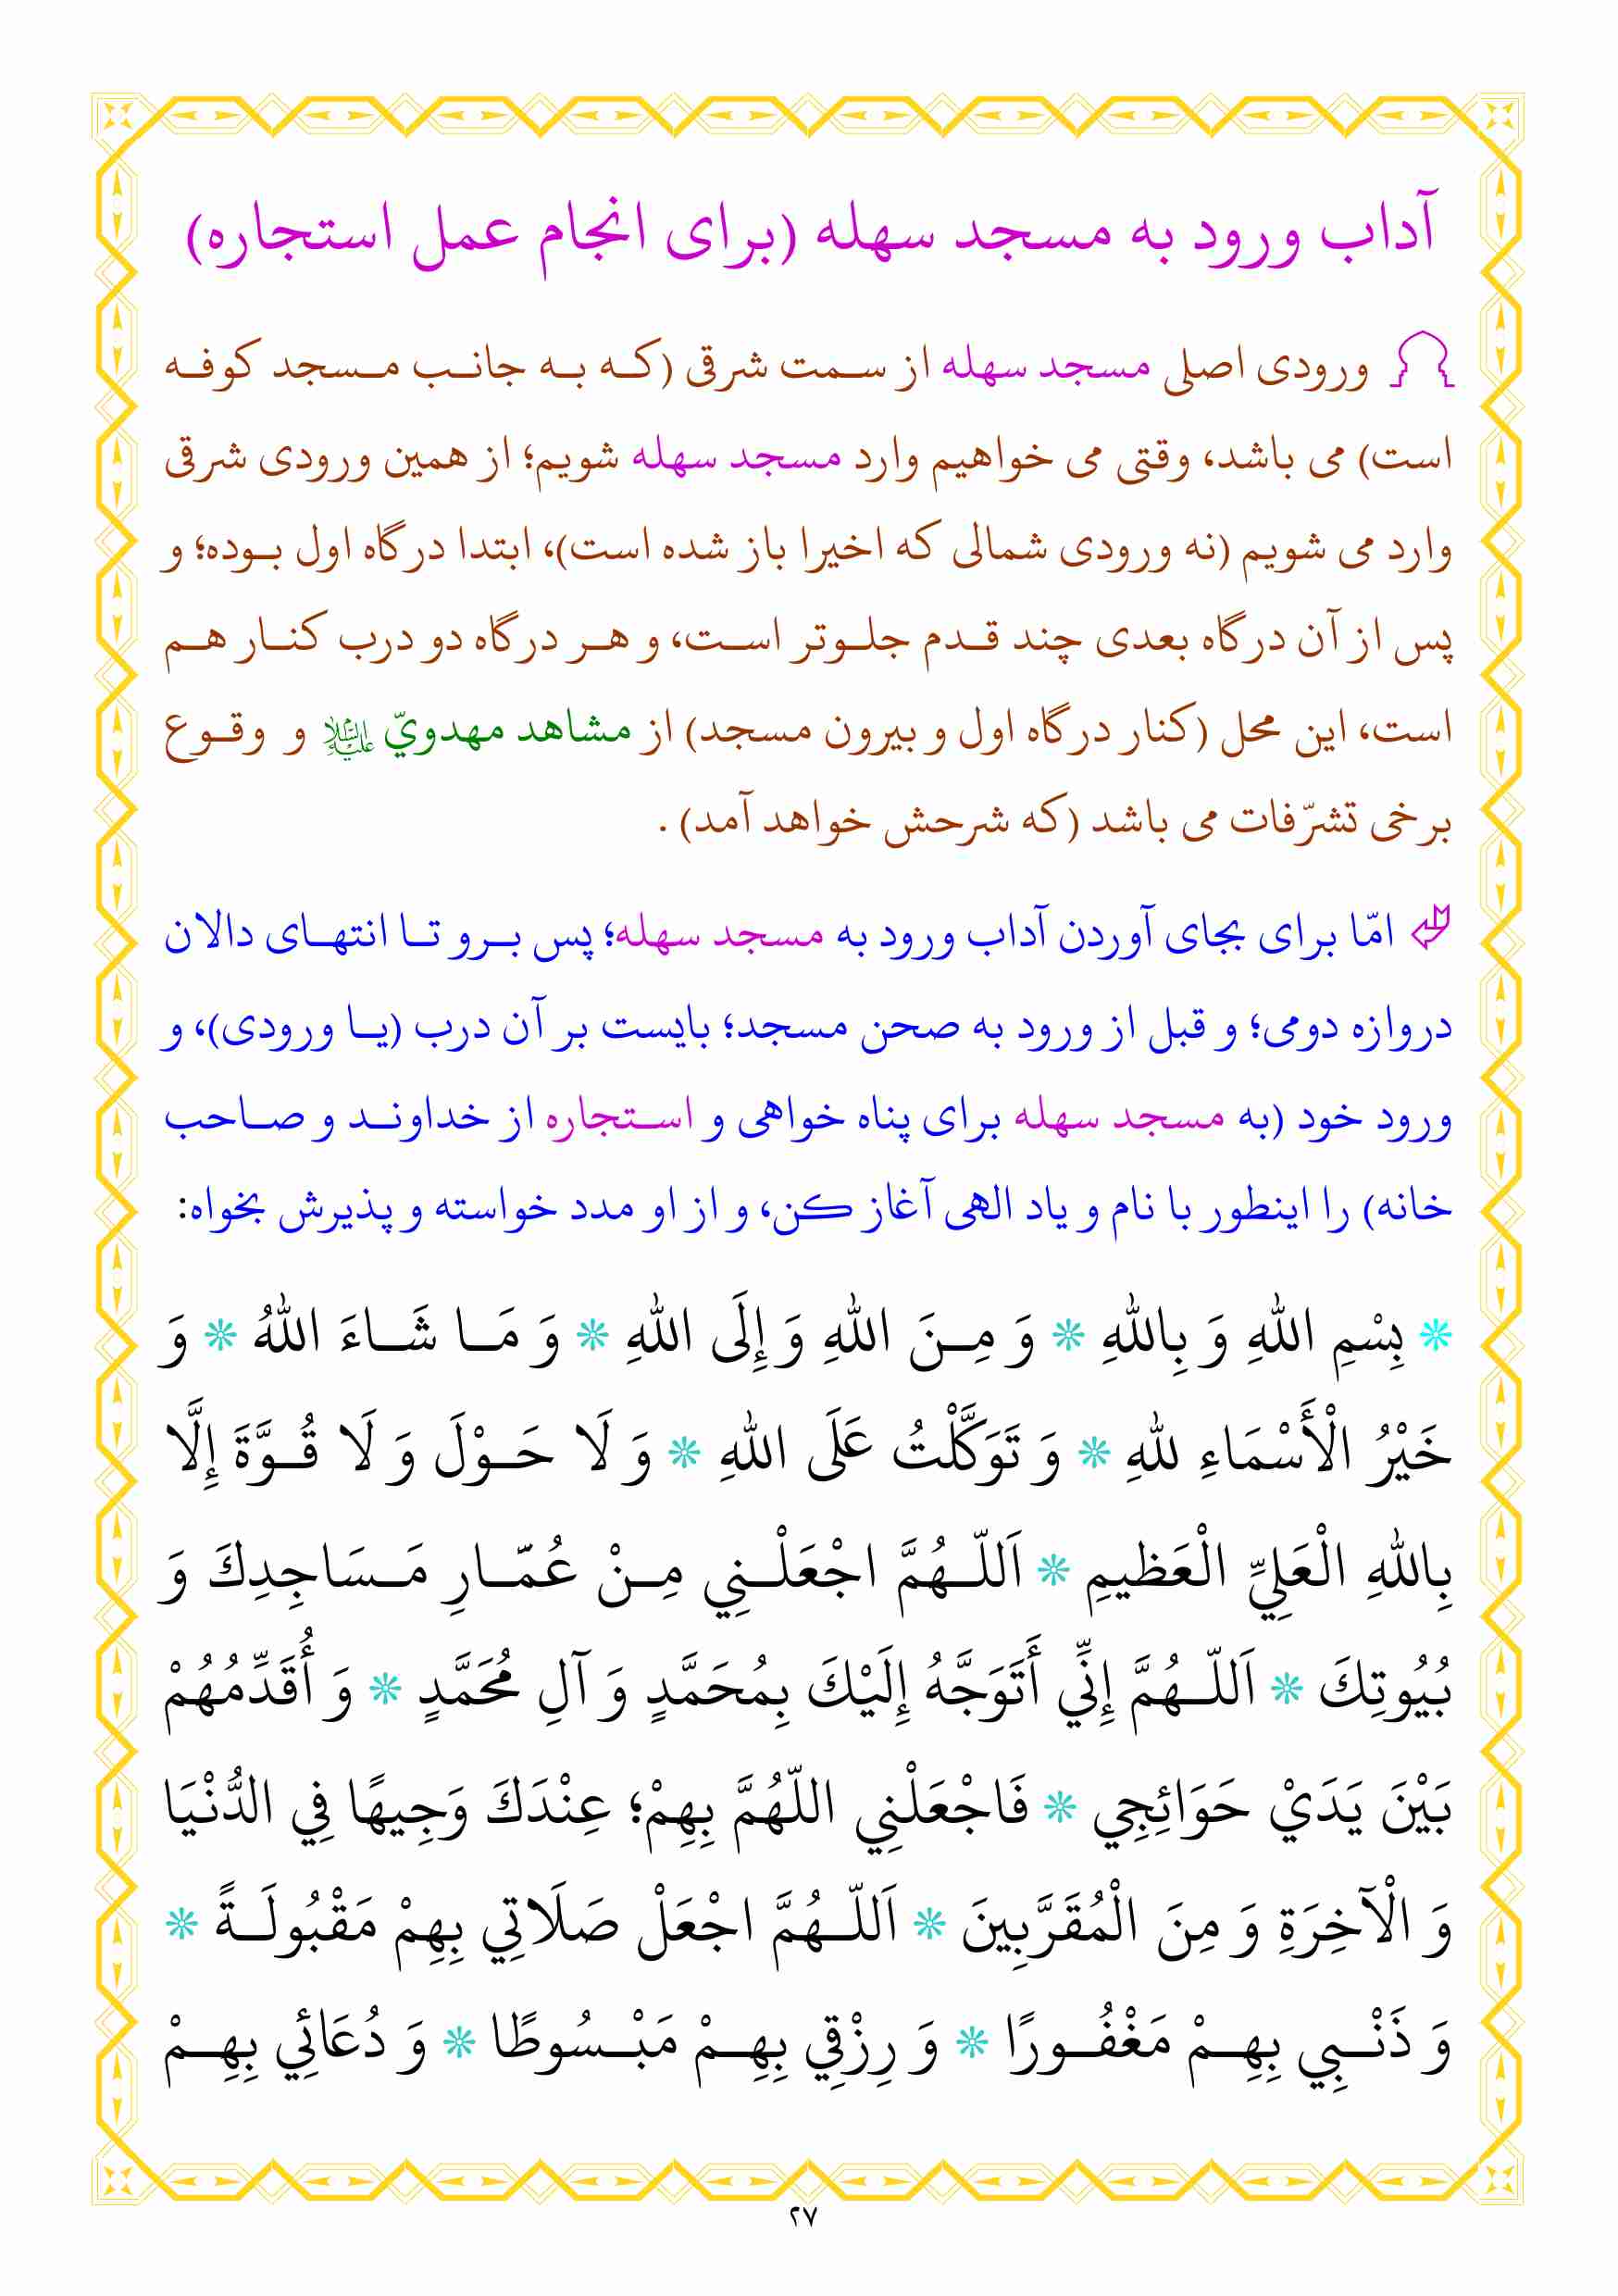 آداب ورود به مسجد سهله (برای انجام عمل استجاره)
ورودی اصلی مسجد سهله از سمت شرقی (که به جانب مسجد کوفه
است) می باشد، وقتی می خواهیم وارد مسجد سهله شویم؛ از همین ورودی شرقی
وارد می شویم (نه ورودی شمالی که اخیرا باز شده است)، ابتدا درگاه اول بوده؛ و
پس از آن درگاه بعدی چند قدم جلوتر است، و هر درگاه دو درب کنار هم
است، این محل (کنار درگاه اول و بیرون مسجد) از مشاهد مهدویّ علیه السلام و وقوع
برخی تشرّفات می باشد (که شرحش خواهد آمد) .
امّا برای بجای آوردن آداب ورود به مسجد سهله؛ پس برو تا انتهای دالان
دروازه دومی؛ و قبل از ورود به صحن مسجد؛ بایست بر آن درب (یا ورودی)، و
ورود خود (به مسجد سهله برای پناه خواهی و استجاره از خداوند و صاحب
خانه) را اینطور با نام و یاد الهی آغاز کن، و از او مدد خواسته و پذیرش بخواه:
* بِسْمِ اللهِ وَ بِاللهِ * وَ مِنَ اللهِ وَ إِلَى اللهِ * وَ مَا شَاءَ اللهُ * وَ
خَيْرُ الْأَسْمَاءِ للهِ * وَ تَوَكَّلْتُ عَلَى اللهِ * وَ لَا حَوْلَ وَ لَا قُوَّةَ إِلَّا
بِاللهِ الْعَلِيِّ الْعَظيمِ * اَللّهُمَّ اجْعَلْنِي مِنْ عُمّارِ مَسَاجِدِكَ وَ
بُيُوتِكَ * اَللّهُمَّ إِنِّي أَتَوَجَّهُ إِلَيْكَ بِمُحَمَّدٍ وَ آلِ مُحَمَّدٍ * وَ أُقَدِّمُهُمْ
بَيْنَ يَدَيْ حَوَائِجِي * فَاجْعَلْنِي اللّهُمَّ بِهِمْ؛ عِنْدَكَ وَجِيهًا فِي الدُّنْيَا
وَ الْآخِرَةِ وَ مِنَ الْمُقَرَّبِينَ * اَللّهُمَّ اجْعَلْ صَلَاتِي بِهِمْ مَقْبُولَةً *
وَ ذَنْبِي بِهِمْ مَغْفُورًا * وَ رِزْقِي بِهِمْ مَبْسُوطًا * وَ دُعَائِي بِهِمْ
۲۷